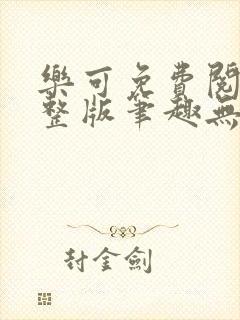 樂可免費閱
整版筆趣無
封金劍